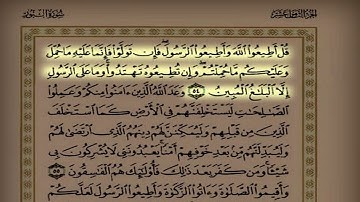 الجزء الثامن عشر سورة النور
قُلْ أَطِيعُوا۟ ٱللَّهَ وَأَطِيعُوا۟ ٱلرَّسُولَ ۖ فَإِن تَوَلَّوْا۟ فَإِنَّمَا عَلَيْهِ مَا حُمِّلَ
وَعَلَيْكُم مَّا حُمِّلْتُمْ ۖ وَإِن تُطِيعُوهُ تَهْتَدُوا۟ ۚ وَمَا عَلَى ٱلرَّسُولِ
إِلَّا ٱلْبَلَـٰغُ ٱلْمُبِينُ ٥٤ وَعَدَ ٱللَّهُ ٱلَّذِينَ ءَامَنُوا۟ مِنكُمْ وَعَمِلُوا۟
ٱلصَّـٰلِحَـٰتِ لَيَسْتَخْلِفَنَّهُمْ فِى ٱلْأَرْضِ كَمَا ٱسْتَخْلَفَ
ٱلَّذِينَ مِن قَبْلِهِمْ وَلَيُمَكِّنَنَّ لَهُمْ دِينَهُمُ ٱلَّذِى ٱرْتَضَىٰ لَهُمْ
وَلَيُبَدِّلَنَّهُم مِّنۢ بَعْدِ خَوْفِهِمْ أَمْنًا ۚ يَعْبُدُونَنِى لَا يُشْرِكُونَ بِى
شَيْـًٔا ۚ وَمَن كَفَرَ بَعْدَ ذَٰلِكَ فَأُو۟لَـٰٓئِكَ هُمُ ٱلْفَـٰسِقُونَ ٥٥
وَأَقِيمُوا۟ ٱلصَّلَوٰةَ وَءَاتُوا۟ ٱلزَّكَوٰةَ وَأَطِيعُوا۟ ٱلرَّسُولَ لَعَلَّكُمْ